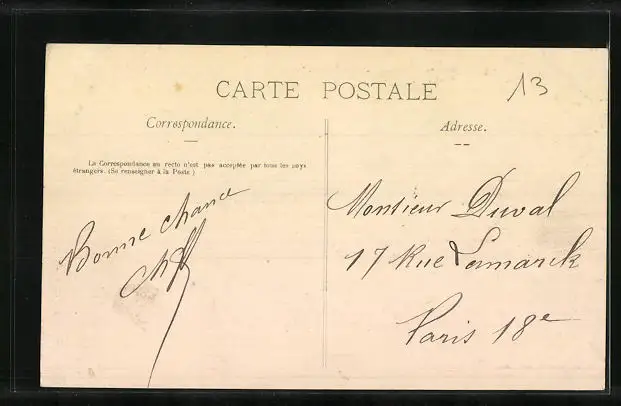 CARTE POSTALE
13
Correspondance.
La Correspondance au recto n'est pas acceptée par tous les pays
étrangers. (Se renseigner à la Poste.)
Bonne chance
Adresse.
Monsieur Duval
17 Rue Lamarck
Paris 18e